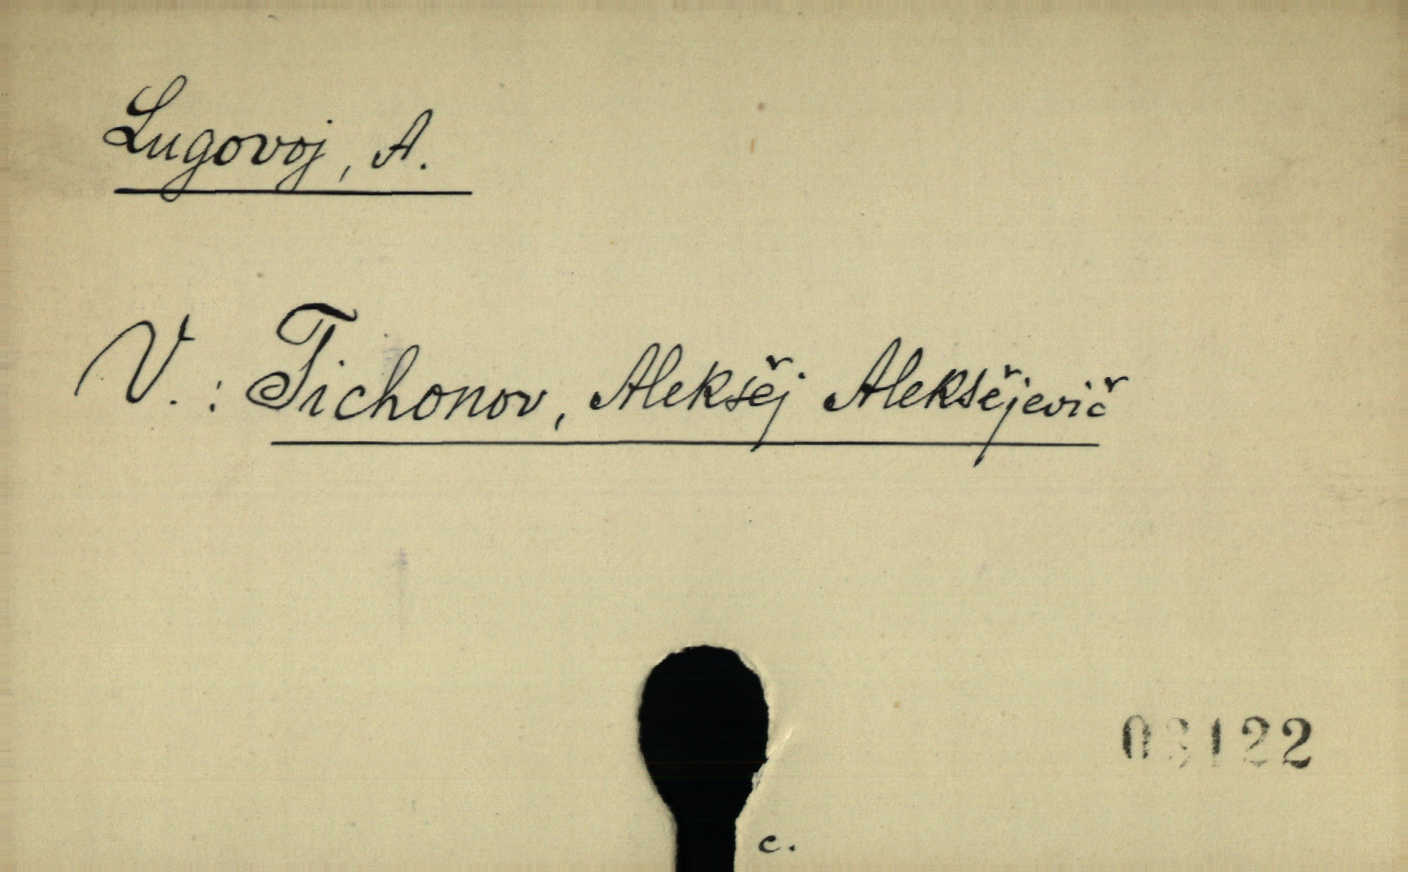 Lugovoj, A.
V.: Tichonov, Aleksěj Aleksějevič
03122
c.